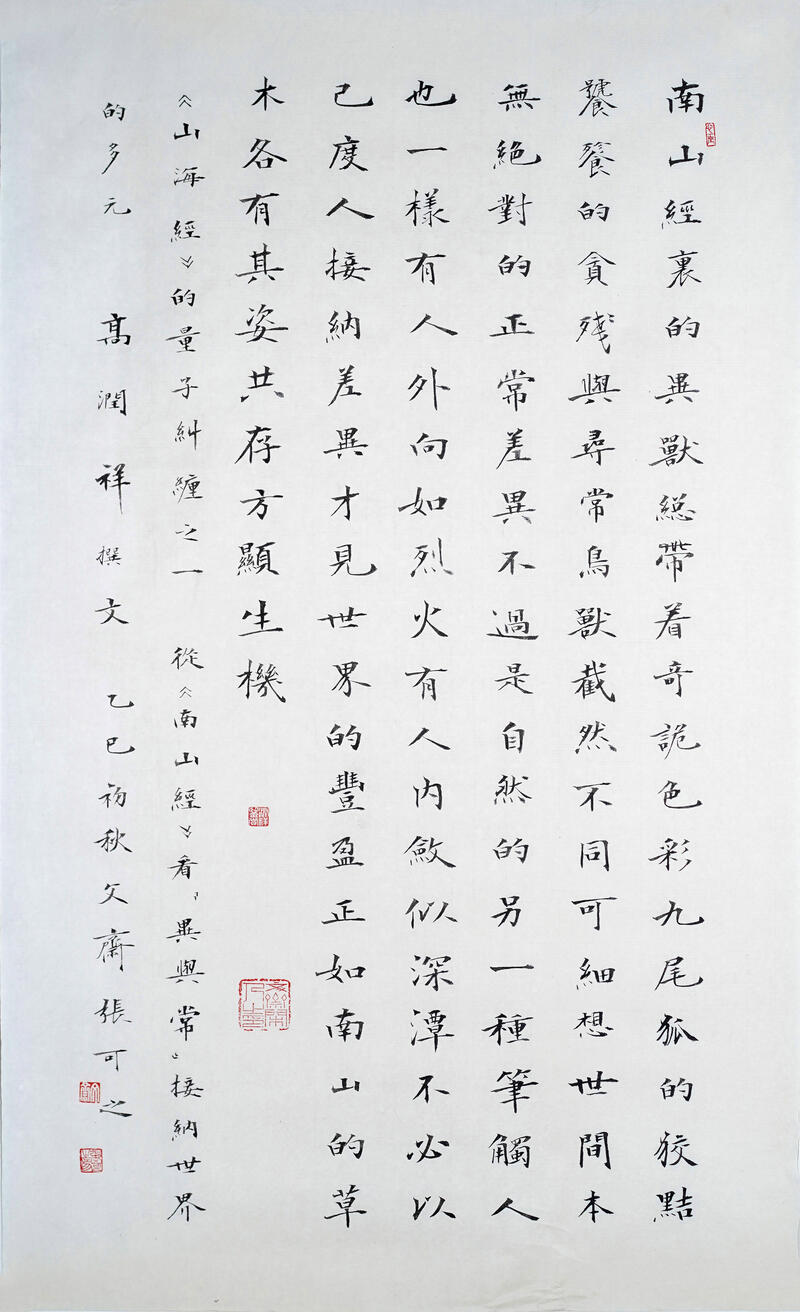 南山經裏的異獸總帶着奇詭色彩九尾狐的狡黠
饕餮的貪殘與尋常鳥獸截然不同可細想世間本
無絕對的正常差異不過是自然的另一種筆觸人
也一樣有人外向如烈火有人內斂似深潭不必以
己度人接納差異才見世界的豐盈正如南山的草
木各有其姿共存方顯生機
《山海經》的量子糾纏之一 從《南山經》看『異與常』接納世界
的多元 高潤祥撰文 乙巳初秋文齋張可之